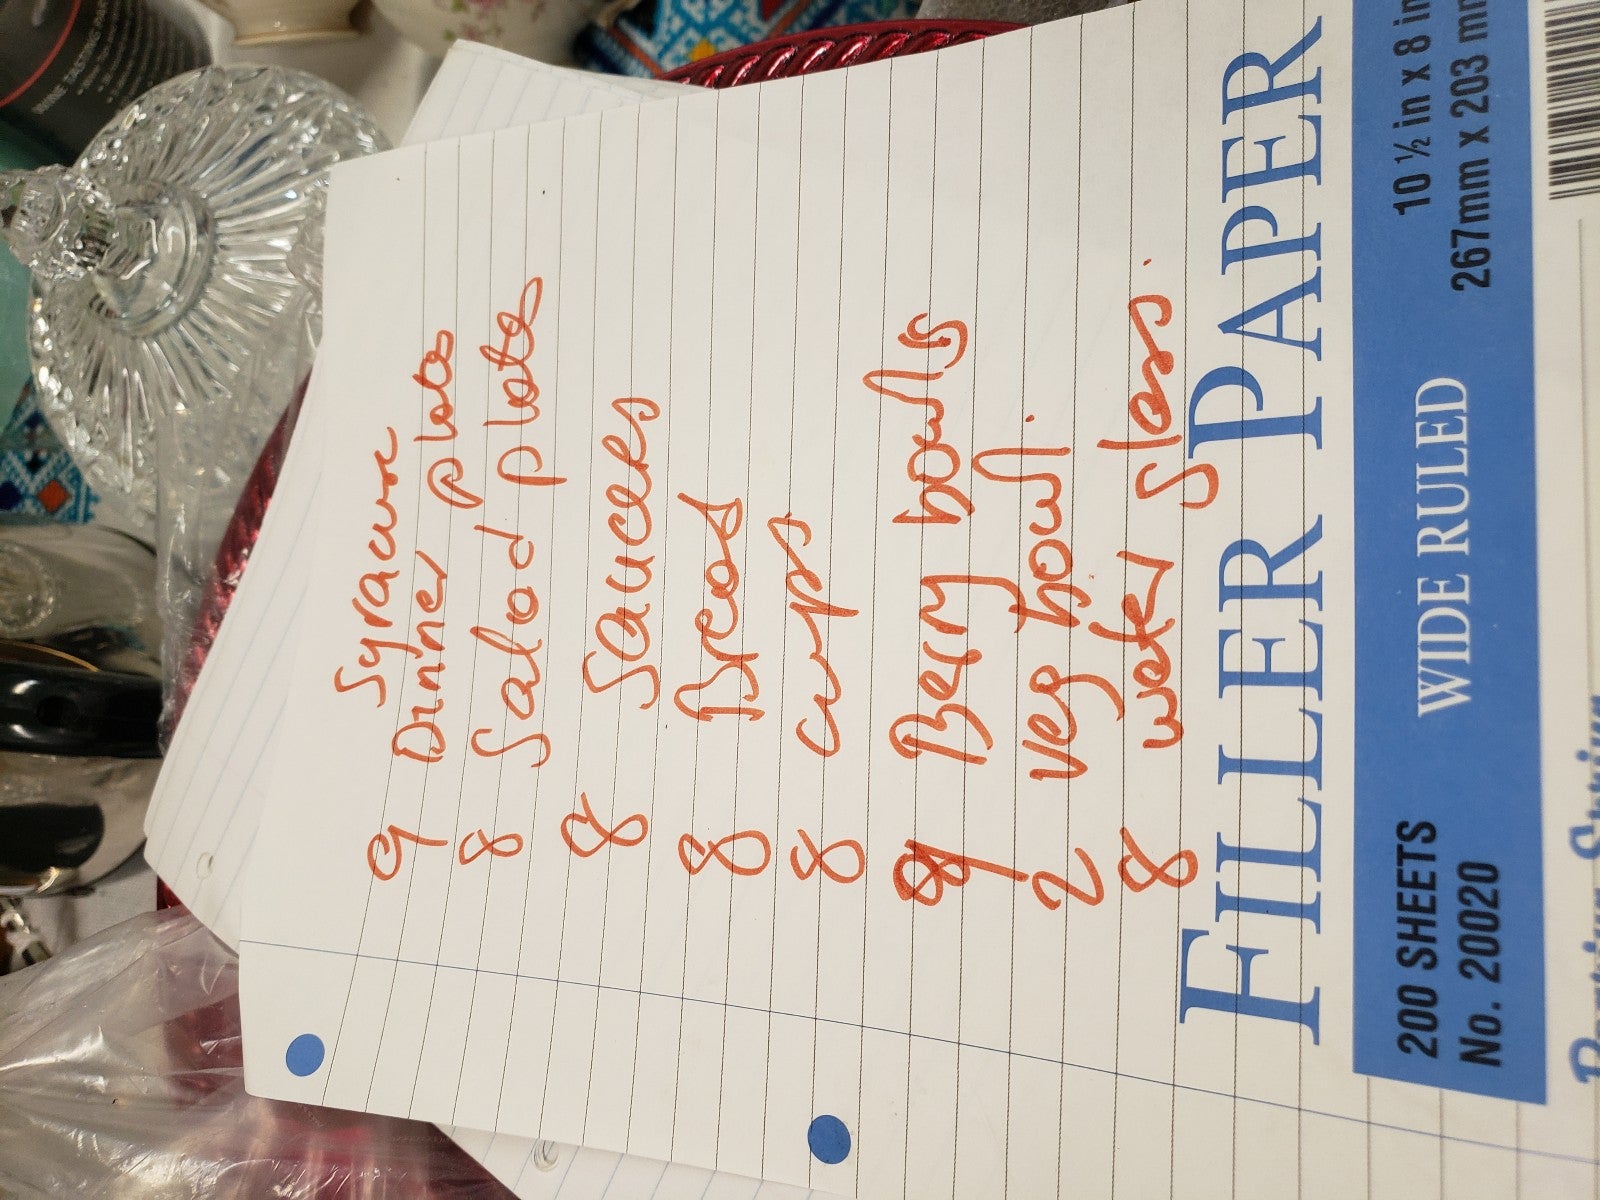 Syracuse
9 Dinner plates
8 Salad plates
8 Saucers
8 Bread
8 cups
9 Berry bowls
2 veg bowl.
8 water glass.
FILLER PAPER
200 SHEETS
No. 200020
WIDE RULED
10 ½ in x 8 in
267mm x 203 mm